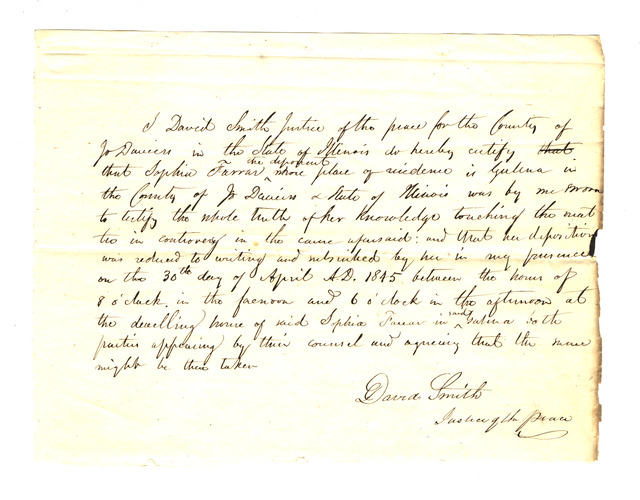 I David Smith Justice of the peace for the County of
Jo Daviess in the State of Illinois do hereby certify that
that Sophia Farrar the deponent whose place of residence is Galena in
the County of Jo Daviess & State of Illinois was by me sworn
to testify the whole truth of her knowledge touching the mat
ter in controversy in the cause aforesaid: and that her deposition
was reduced to writing and subscribed by her in my presence
on the 30th day of April A.D. 1845 between the hours of
8 o'clock in the forenoon and 6 o'clock in the afternoon at
the dwelling house of said Sophia Farrar in said Galena both
parties appearing by their counsel and agreeing that the same
might be then taken
David Smith
Justice of the peace